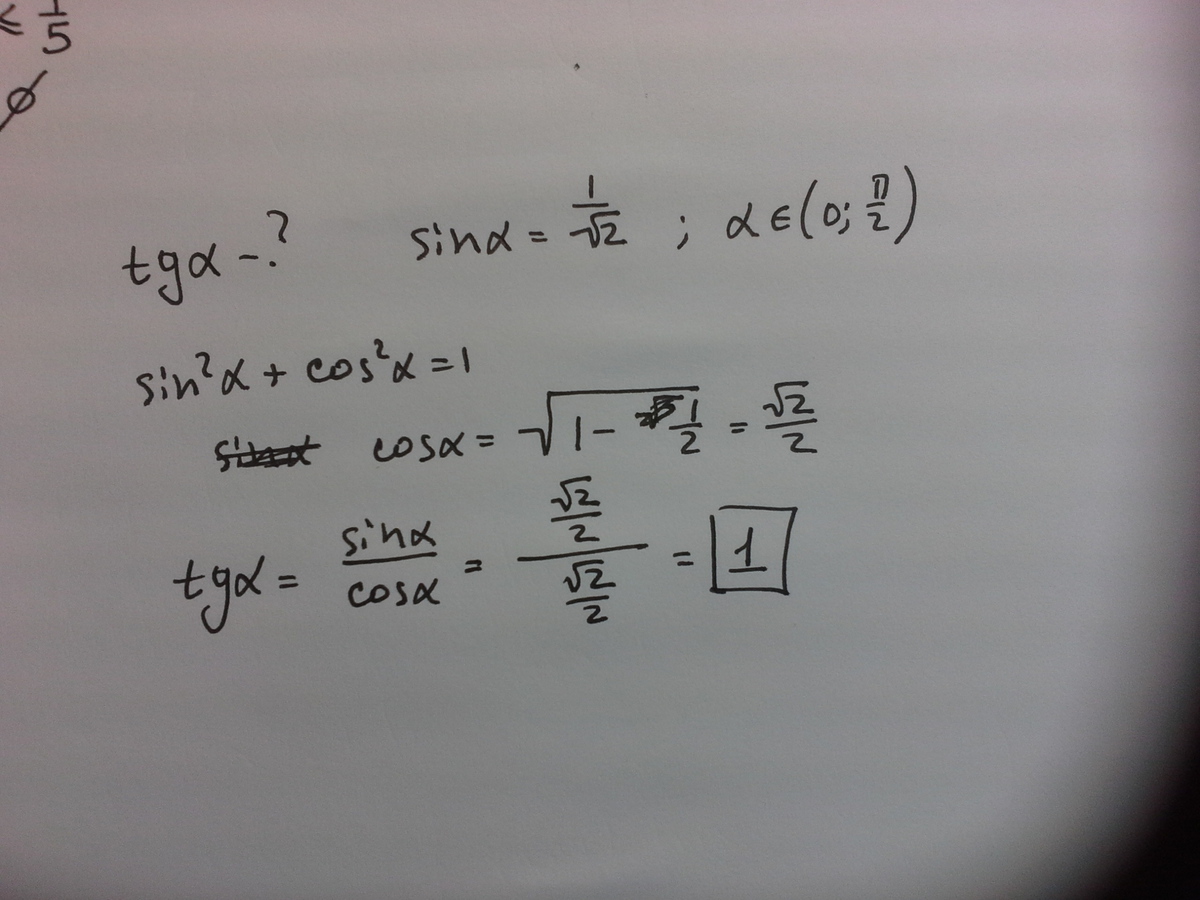 ≤ 1/5
∅
tgα -? sinα = 1/√2 ; α ∈ (0; π/2)
sin²α + cos²α = 1
cosα = √(1 - 1/2) = √2/2
tgα = sinα/cosα = (√2/2)/(√2/2) = 1